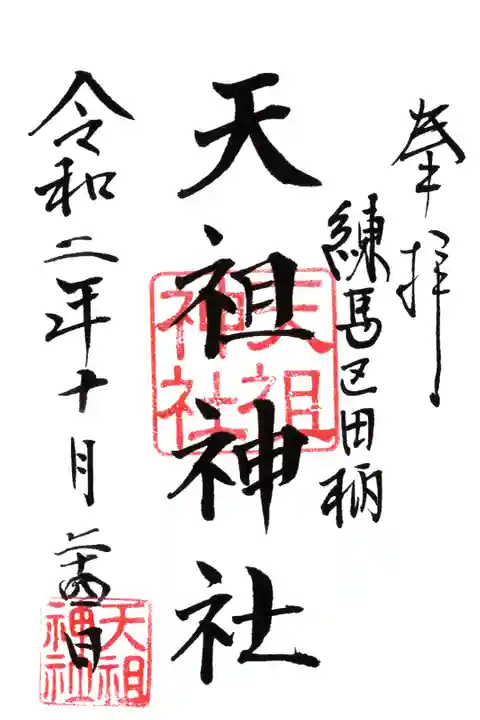 奉拝
練馬区田柄
天祖神社
天祖
神社
令和二年十月二十四日
天祖
神社